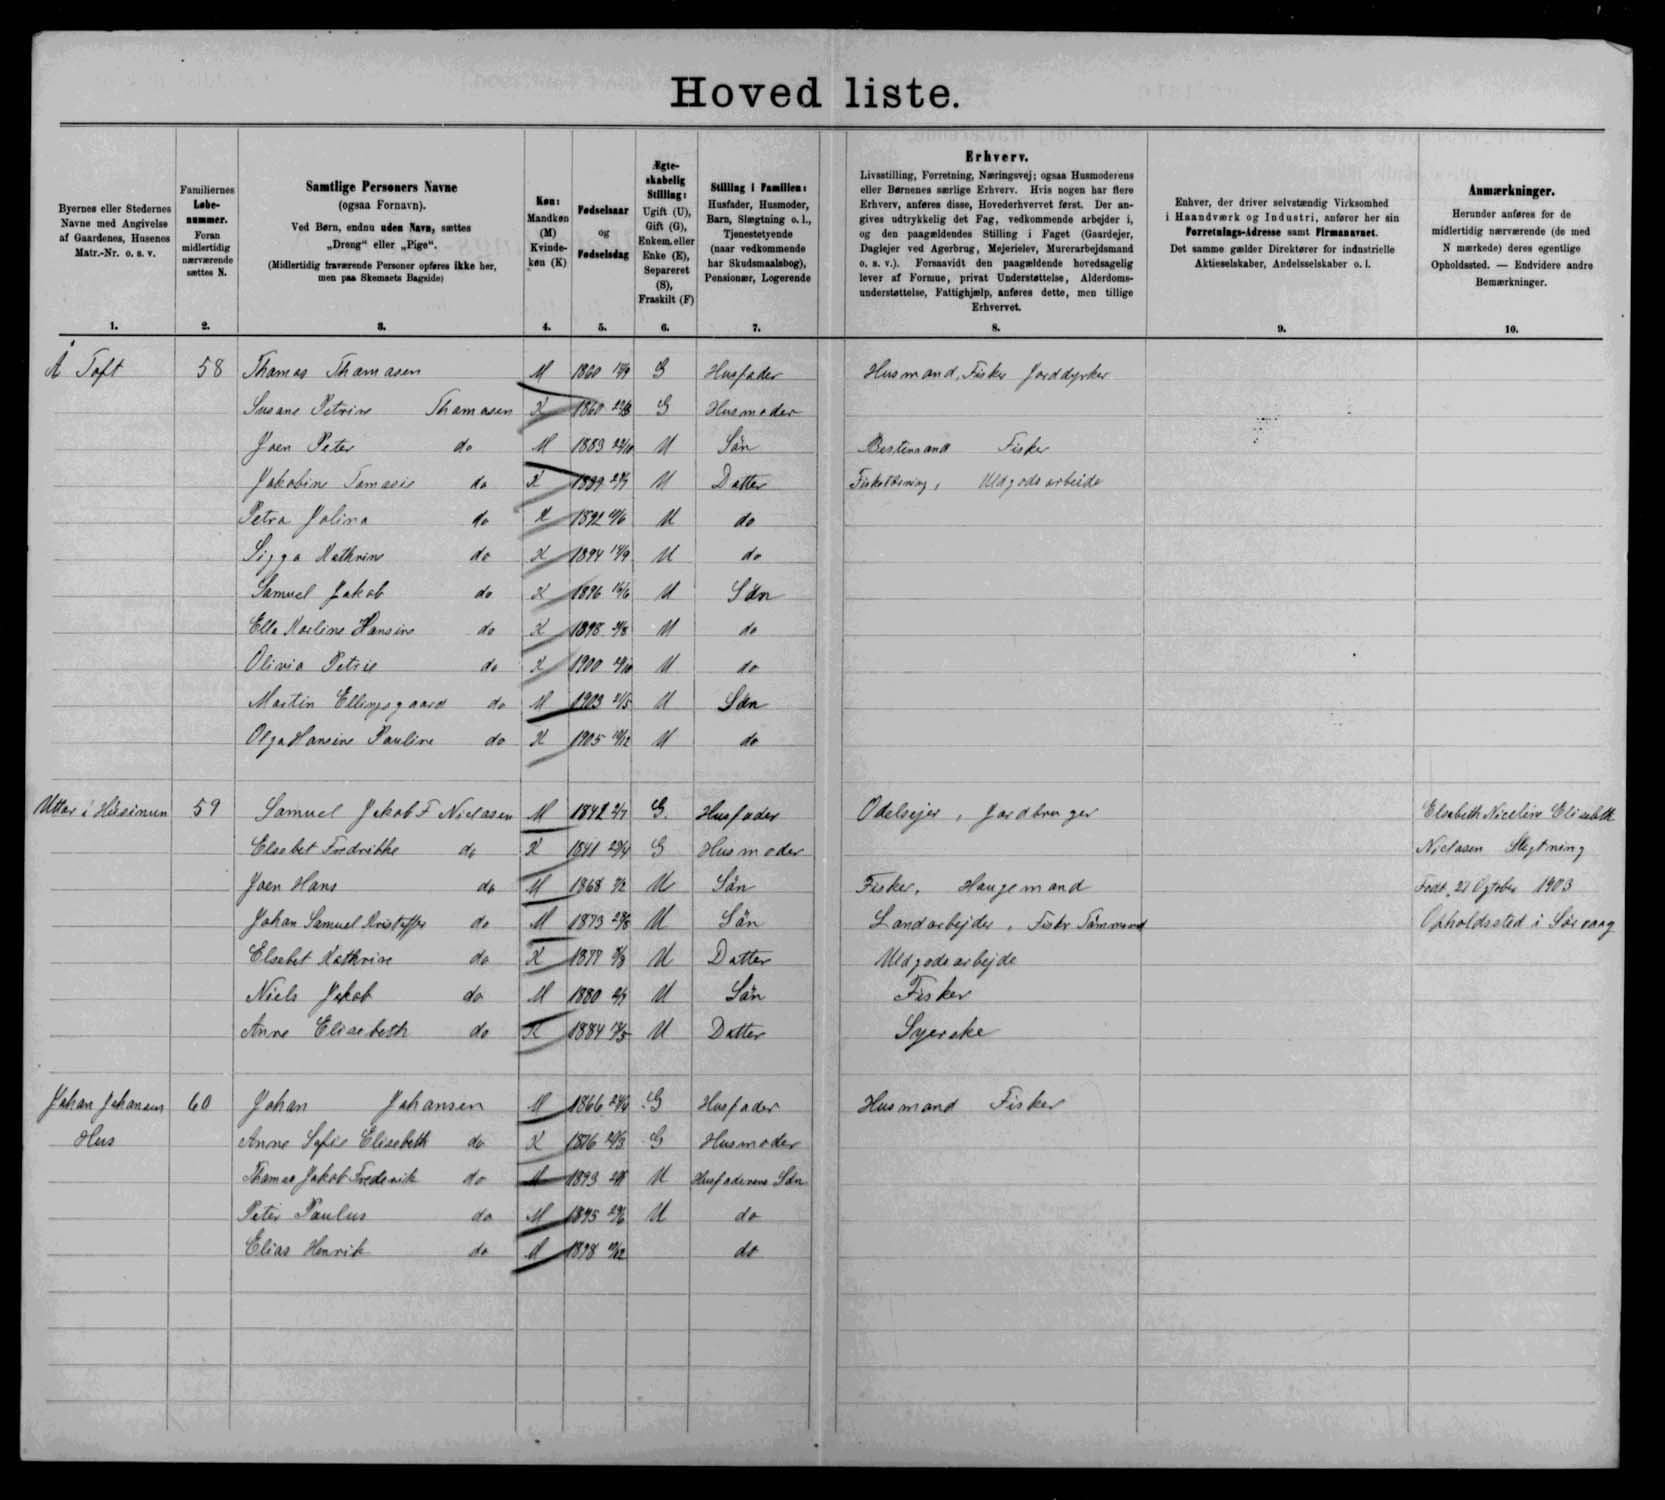 Hoved liste.
Byernes eller Stedernes
Navne med Angivelse
af Gaardenes, Husenes
Matr.-Nr. o. s. v.
Familiernes
Løbe-
nummer.
Foran
midlertidig
nærværende
sættes N.
Samtlige Personers Navne
(ogsaa Fornavn).
Ved Børn, endnu uden Navn, sættes
„Dreng“ eller „Pige“.
(Midlertidig fraværende Personer opføres ikke her,
men paa Skemaets Bagside)
Køn:
Mandkøn
(M)
Kvinde-
køn (K)
Fødselsaar
og
Fødselsdag
Ægte-
skabelig
Stilling:
Ugift (U),
Gift (G),
Enkem. eller
Enke (E),
Separeret
(S),
Fraskilt (F)
Stilling i Familien:
Husfader, Husmoder,
Barn, Slægtning o. l.,
Tjenestetyende
(naar vedkommende
har Skudsmaalsbog),
Pensionær, Logerende
Erhverv.
Livsstilling, Forretning, Næringsvej; ogsaa Husmoderens
eller Børnenes særlige Erhverv. Hvis nogen har flere
Erhverv, anføres disse, Hovederhvervet først. Der an-
gives udtrykkelig det Fag, vedkommende arbejder i,
og den paagældendes Stilling i Faget (Gaardejer,
Daglejer ved Agerbrug, Mejerielev, Murerarbejdsmand
o. s. v.). Forsaavidt den paagældende hovedsagelig
lever af Formue, privat Understøttelse, Alderdoms-
understøttelse, Fattighjælp, anføres dette, men tillige
Erhvervet.
Enhver, der driver selvstændig Virksomhed
i Haandværk og Industri, anfører her sin
Forretnings-Adresse samt Firmanavnet.
Det samme gælder Direktører for industrielle
Aktieselskaber, Andelsselskaber o. l.
Anmærkninger.
Herunder anføres for de
midlertidig nærværende (de med
N mærkede) deres egentlige
Opholdssted. — Endvidere andre
Bemærkninger.
1. 2. 3. 4. 5. 6. 7. 8. 9. 10.
Á Toft 58 Thomas Thomasen M 1860 G Husfader Husmand, Fisker Jorddyrker
Susane Petrine Thomasen K 1860 G Husmoder
Joen Peter do M 1883 U Sön Bestemand Fisker
Jakobine do K 1889 U Datter Uldgods arbeide
Petra Jolina do K 1892 U do
Sigga Kathrine do K 1894 U do
Samuel Jakob do K 1896 U Sön
Ella Hansine do K 1898 U do
Olivia Petrie do K 1900 U do
Martin Ellingsgaard do M 1903 U Sön
Olga Hansine Pauline do K 1905 U do
59 Samuel Jakob F Niclasen M 1842 G. Husfader Odelsejer, Jordbruger Elsebeth Niceline Elisabeth
Elsebet Fredrikke do K 1841 G Husmoder Niclasen Slegtning
Joen Hans do M 1868 U Sön Fisker, Haugemand Född 1903
Johan Samuel do M 1873 U Sön Landarbejder, Fisker Tömmermd Opholdssted i Sörvaag
Elsebet Kathrine do K 1877 U Datter Uldgodsarbejde
Niels Jakob do M 1880 U Sön Fisker
Anne Elisebeth do K 1884 U Datter Syerske
Johan Johansen 60 Johan Johansen M 1866 G Husfader Husmand Fisker
Hus Anne Sofie Elisebeth do K 1876 G Husmoder
Thomas Jakob Frederik do M 1893 U Husfaderens Sön
Peter Paulus do M 1895 U do
Elias Henrik do M 1898 do